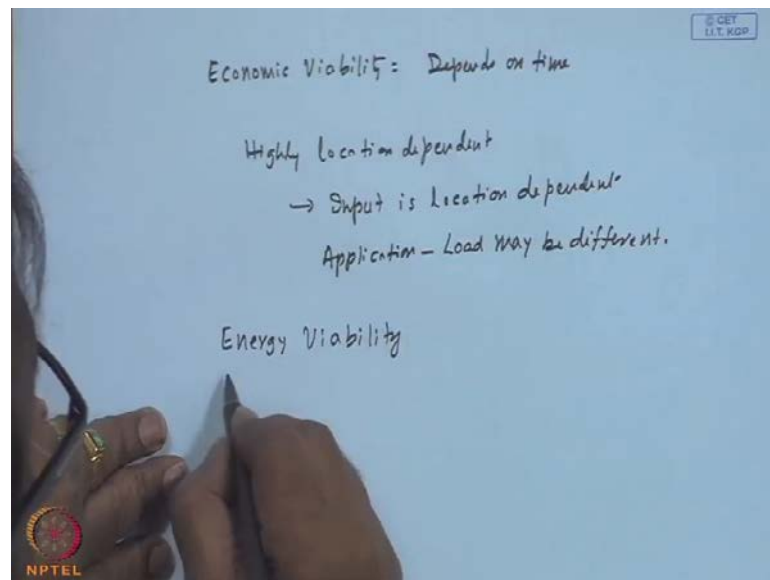 © CET
I.I.T. KGP
Economic Viability : Depends on time
Highly location dependent
→ Input is location dependent.
Application – Load may be different.
Energy Viability
NPTEL